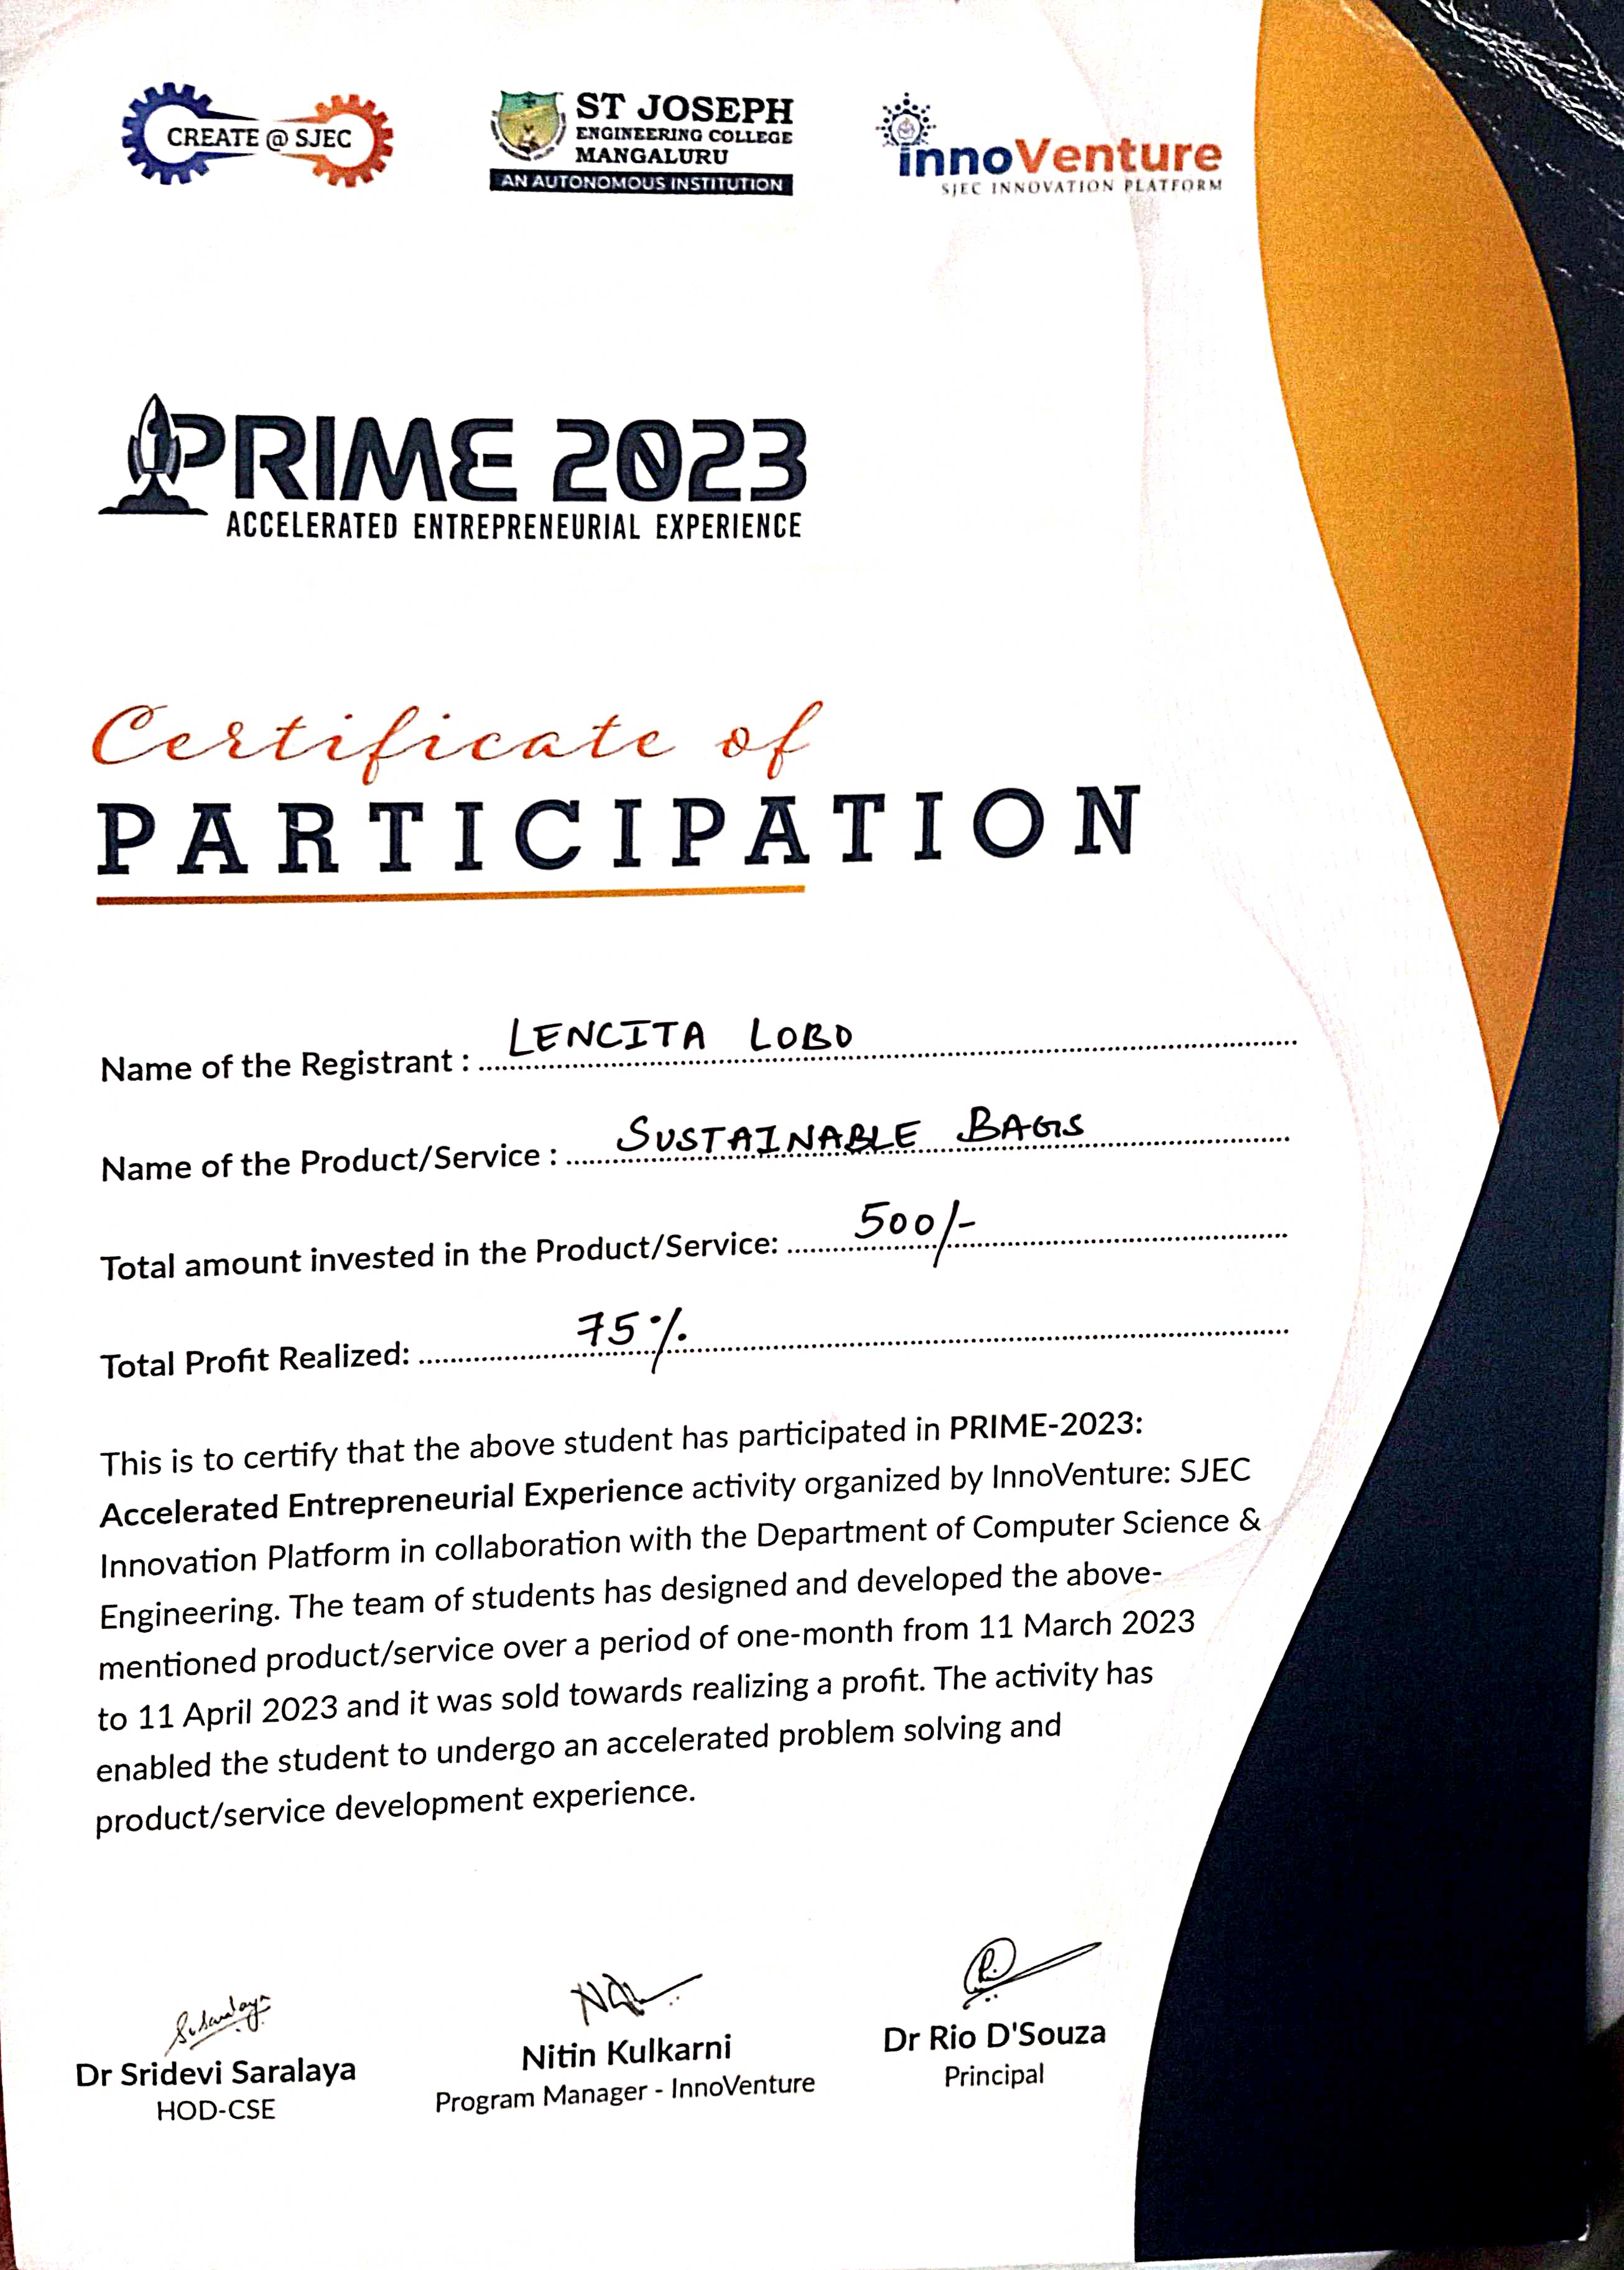 CREATE @ SJEC
ST JOSEPH
ENGINEERING COLLEGE
MANGALURU
AN AUTONOMOUS INSTITUTION
innoVenture
SJEC INNOVATION PLATFORM
PRIME 2023
ACCELERATED ENTREPRENEURIAL EXPERIENCE
Certificate of
PARTICIPATION
Name of the Registrant : LENCITA LOBO
Name of the Product/Service : SUSTAINABLE BAGS
Total amount invested in the Product/Service: 500/-
Total Profit Realized: 75%
This is to certify that the above student has participated in PRIME-2023:
Accelerated Entrepreneurial Experience activity organized by InnoVenture: SJEC
Innovation Platform in collaboration with the Department of Computer Science &
Engineering. The team of students has designed and developed the above-
mentioned product/service over a period of one-month from 11 March 2023
to 11 April 2023 and it was sold towards realizing a profit. The activity has
enabled the student to undergo an accelerated problem solving and
product/service development experience.
Dr Sridevi Saralaya
HOD-CSE
Nitin Kulkarni
Program Manager - InnoVenture
Dr Rio D'Souza
Principal